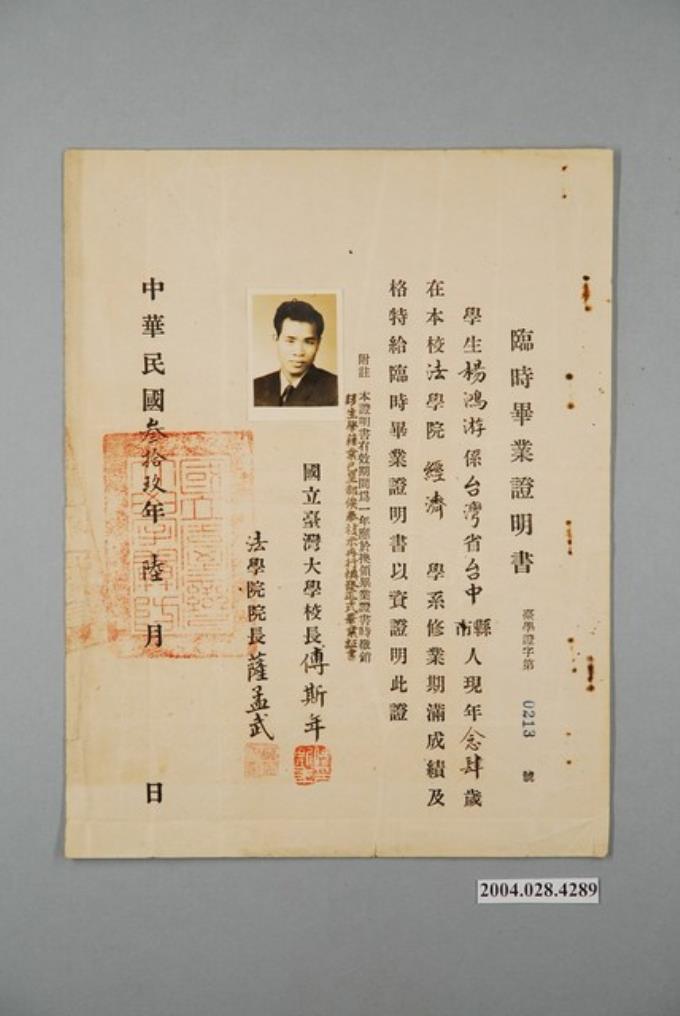 臨時畢業證明書
臺學證字第 0213 號
學生楊鴻游係台灣省台中縣市人現年念肆歲
在本校法學院經濟學系修業期滿成績及
格特給臨時畢業證明書以資證明此證
附註 本證明書有效期間爲一年應於換領畢業證書時繳銷
國立臺灣大學校長傅斯年
法學院院長薩孟武
中華民國叁拾玖年陸月 日
2004.028.4289